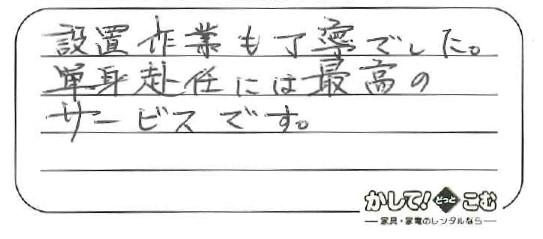 設置作業も丁寧でした。
単身赴任には最高の
サービスです。
かして!どっとこむ
家具・家電のレンタルなら